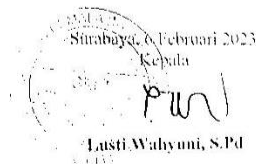 Surabaya, 6 Februari 2023
Kepala
Lusti Wahyuni, S.Pd